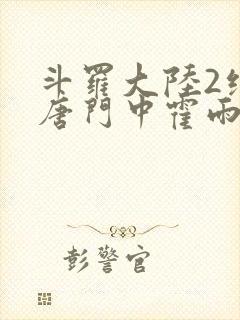 斗羅大陸2
唐門中霍雨
彭警官